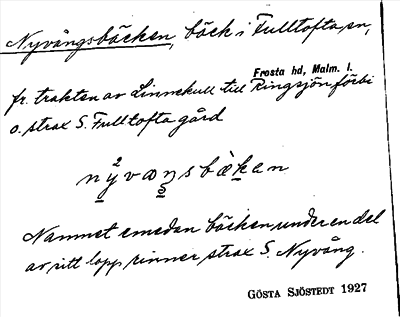 Nyvångsbäcken, bäck i Fulltofta sn,
Frosta hd, Malm. l.
fr. trakten av Linnekull till Ringsjön förbi
o. strax S. Fulltofta gård
Namnet emedan bäcken under en del
av sitt lopp rinner strax S. Nyvång.
GÖSTA SJÖSTEDT 1927